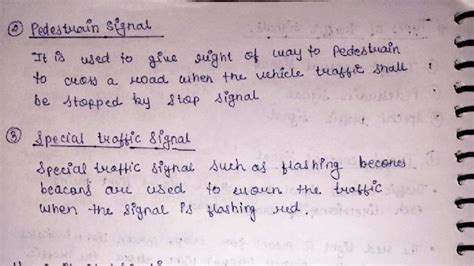 ② Pedestrain Signal
It is used to give right of way to Pedestrain
to cross a road when the vehicle traffic shall
be stopped by stop signal
③ Special traffic Signal
Special traffic signal such as flashing becones
beacons are used to wourn the traffic
when the signal is flashing red.